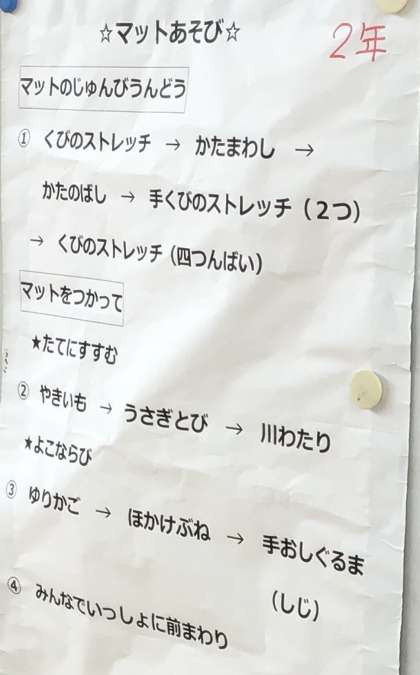 ☆マットあそび☆
2年
マットのじゅんびうんどう
① くびのストレッチ → かたまわし →
かたのばし → 手くびのストレッチ（２つ）
→ くびのストレッチ（四つんばい）
マットをつかって
★たてにすすむ
② やきいも → うさぎとび → 川わたり
★よこならび
③ ゆりかご → ほかけぶね → 手おしぐるま
（しじ）
④ みんなでいっしょに前まわり